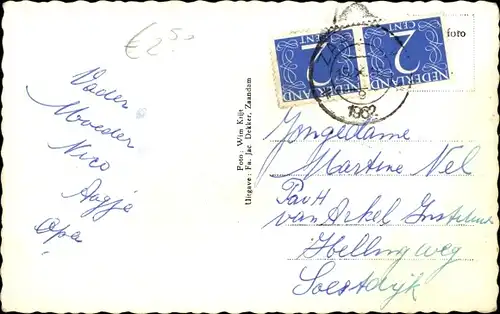 € 2.50
Vader
Moeder
Nico
Aagje
Opa
Foto: Wim Krijt
Uitgave: Fa. Jac Dekker, Zaandam
2
CENT
NEDERLAND
2
CENT
NEDERLAND
1962
foto
Jongedame
Martine Nel
van Arkel
Hellingweg
Soestdijk